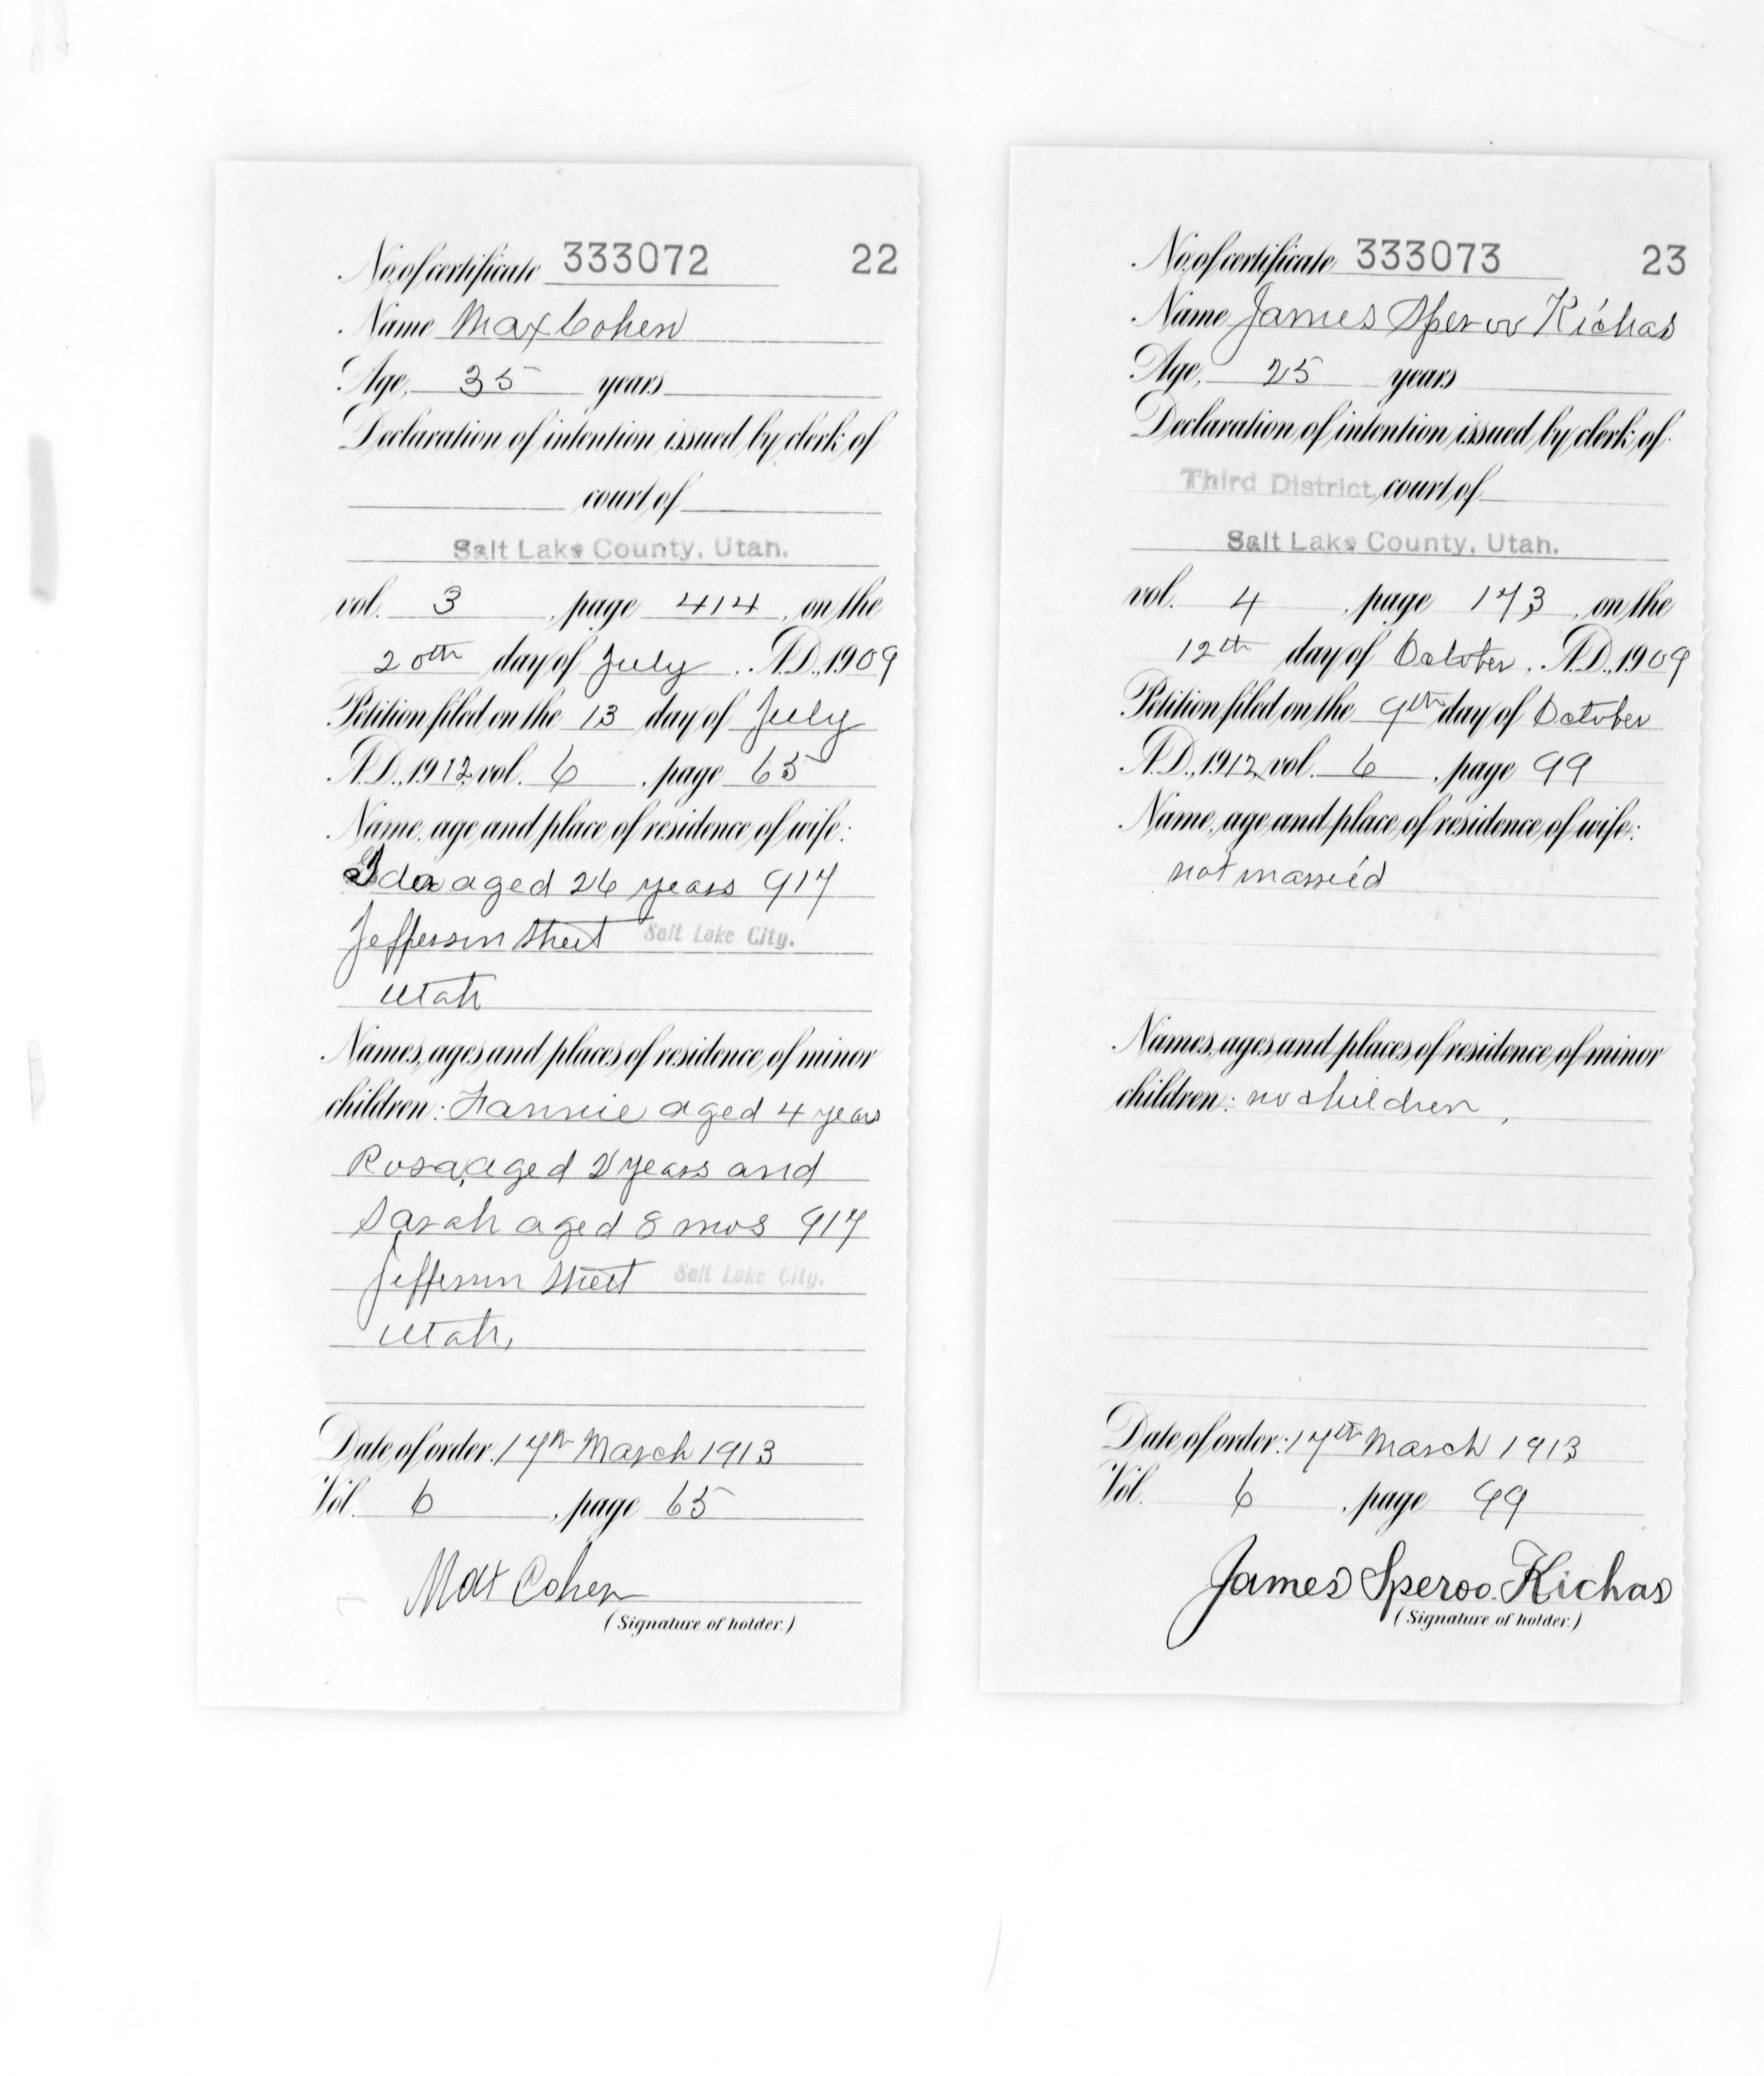 No. of certificate 333072 22
Name Max Cohen
Age, 35 years
Declaration of intention issued by clerk of
court of
Salt Lake County, Utah.
vol. 3, page 414, on the
20th day of July, A.D., 1909
Petition filed on the 13 day of July
A.D., 1912, vol. 6, page 65
Name, age and place of residence of wife:
Ida aged 26 years 917
Jefferson Street Salt Lake City.
Utah
Names, ages and places of residence of minor
children: Fannie aged 4 years
Rosa, aged 2 years and
Sarah aged 8 mos 917
Jefferson Street Salt Lake City.
Utah,
Date of order: 17th March 1913
Vol. 6, page 65
Max Cohen
(Signature of holder.)
No. of certificate 333073 23
Name James Speroo Kichas
Age, 25 years
Declaration of intention issued by clerk of
Third District court of
Salt Lake County, Utah.
vol. 4, page 173, on the
12th day of October, A.D., 1909
Petition filed on the 9th day of October
A.D., 1912, vol. 6, page 99
Name, age and place of residence of wife:
not married
Names, ages and places of residence of minor
children: no children,
Date of order: 17th March 1913
Vol. 6, page 99
James Speroo Kichas
(Signature of holder.)